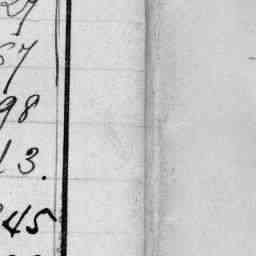 27
67
98
13.
45